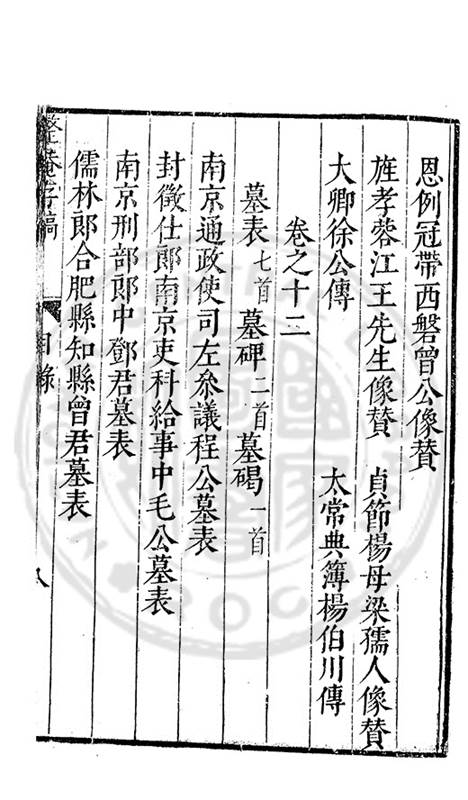 恩例冠帶西磐曾公像贊
旌孝蓉江王先生像贊　貞節楊母梁孺人像贊
大卿徐公傳　太常典簿楊伯川傳
卷之十二
墓表七首　墓碑二首　墓碣一首
南京通政使司左叅議程公墓表
封徵仕郎南京吏科給事中毛公墓表
南京刑部郎中鄧君墓表
儒林郎合肥縣知縣曾君墓表
整菴存稿　目錄　八